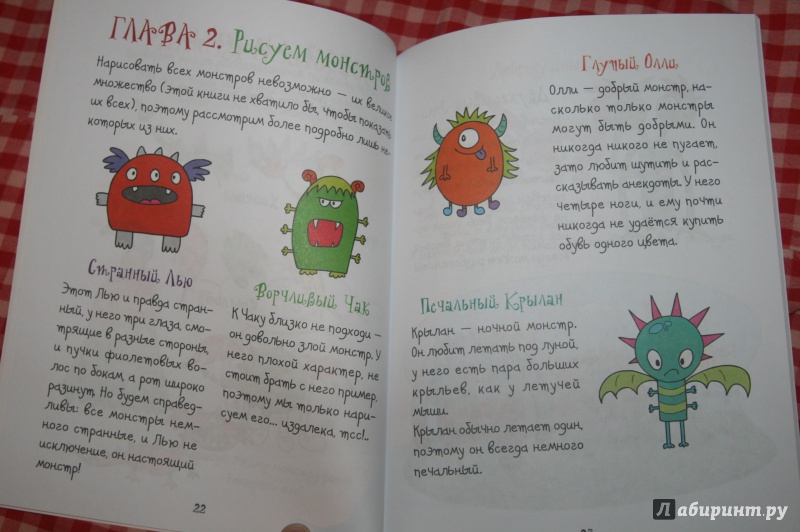 ГЛАВА 2. Рисуем монстров
Нарисовать всех монстров невозможно — их великое
множество (этой книги не хватило бы, чтобы показать
их всех), поэтому рассмотрим более подробно лишь не-
которых из них.
Странный Лью
Этот Лью и правда стран-
ный, у него три глаза, смо-
трящие в разные стороны,
и пучки фиолетовых во-
лос по бокам, а рот широко
разинут. Но будем справед-
ливы: все монстры нем-
ного странные, и Лью не
исключение, он настоящий
монстр!
Ворчливый Чак
К Чаку близко не подходи —
он довольно злой монстр. У
него плохой характер, не
стоит брать с него пример,
поэтому мы только нари-
суем его... издалека, тсс!..
22
Глупый Олли
Олли — добрый монстр, на-
сколько только монстры
могут быть добрыми. Он
никогда никого не пугает,
зато любит шутить и рас-
сказывать анекдоты. У него
четыре ноги, и ему почти
никогда не удаётся купить
обувь одного цвета.
Печальный Крылан
Крылан — ночной монстр.
Он любит летать под луной,
у него есть пара больших
крыльев, как у летучей
мыши.
Крылан обычно летает один,
поэтому он всегда немного
печальный.
Лабиринт.ру